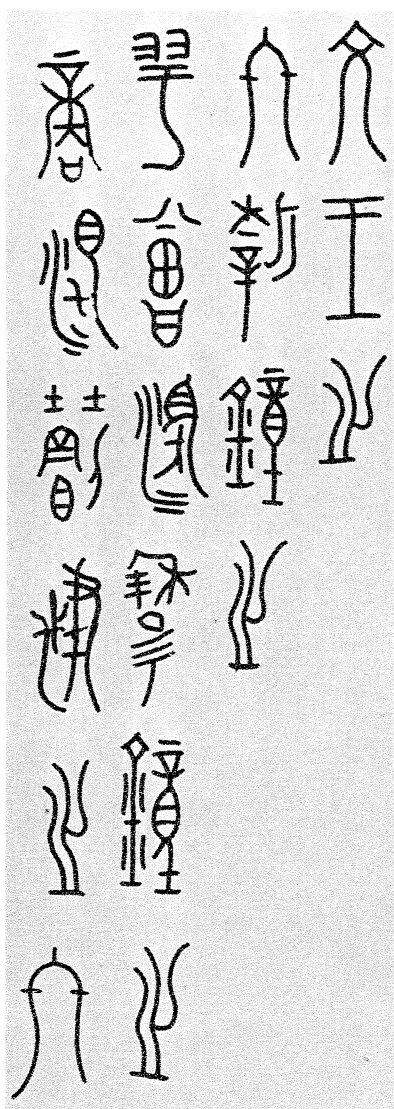 文王之
冬新鐘之
羽曾濁穆鐘之
商濁割肄之冬